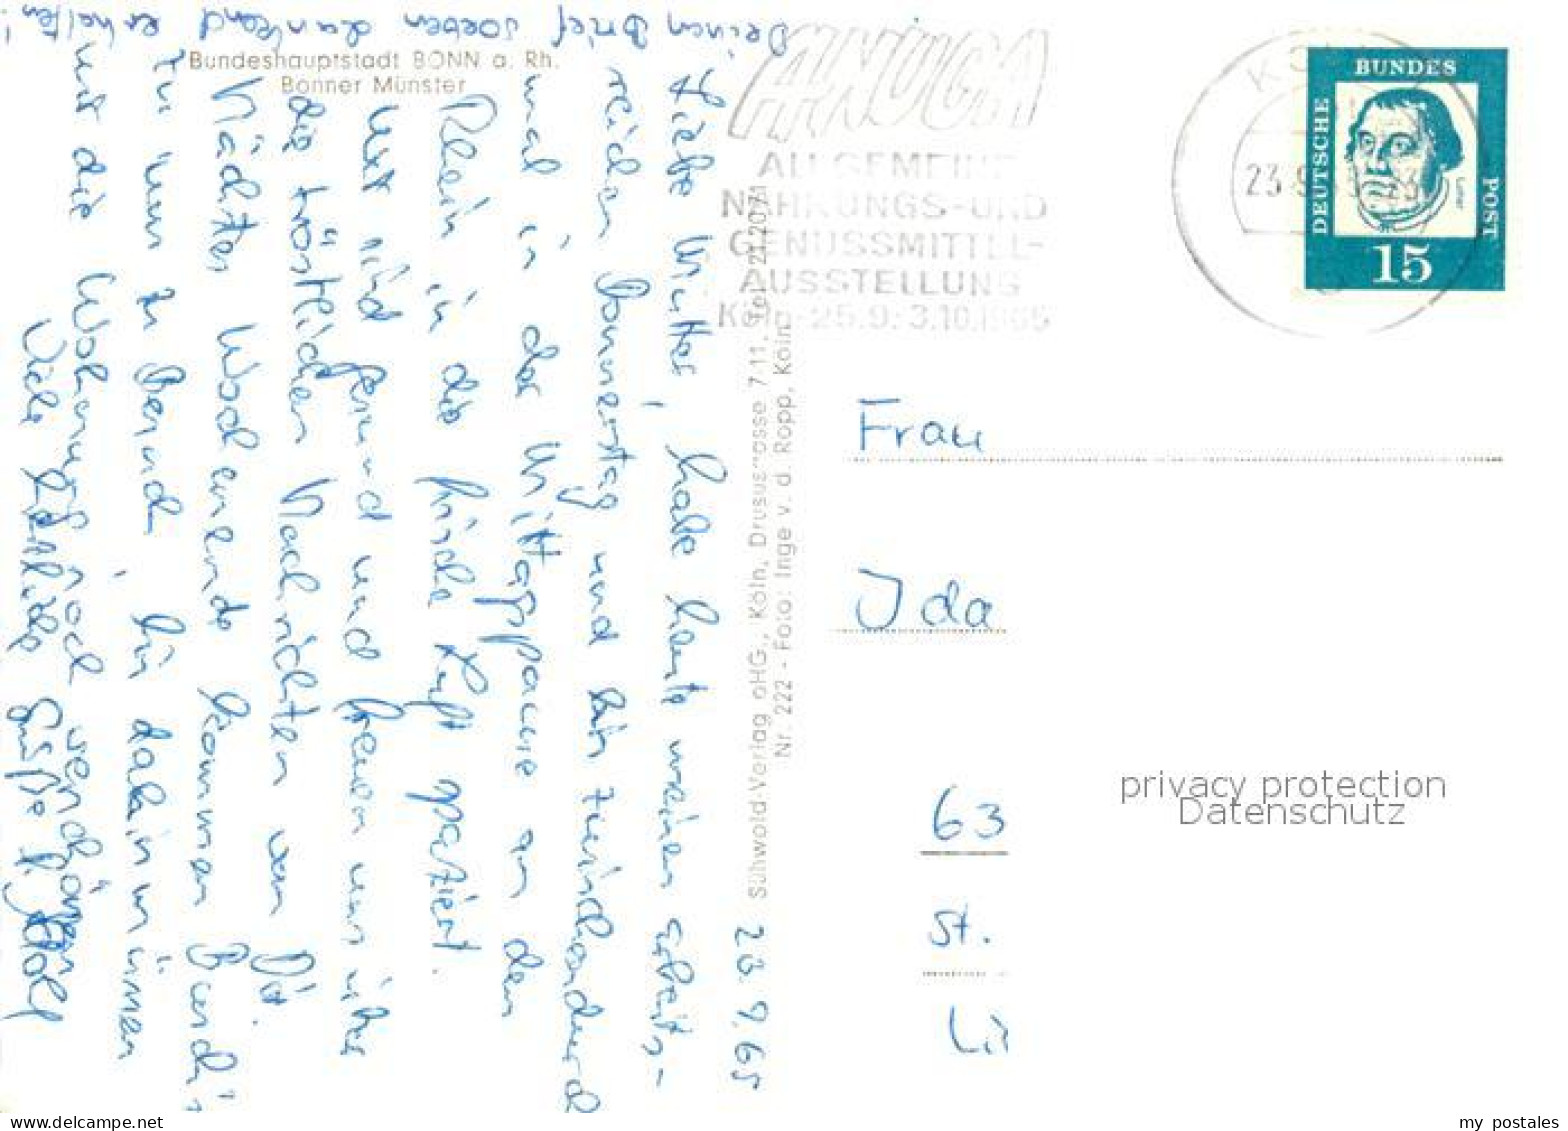 Deinen Brief soeben dankend erhalten!
Bundeshauptstadt BONN a. Rh.
Bonner Münster
23.9.65
Liebe Mutter, habe heute meinen arbeits-
reichen Donnerstag und bin zwischendurch
mal in der Mittagspause an den
Rhein in die frische Luft spaziert.
sind gesund und freuen uns über
die tröstlichen Nachrichten von
Nächstes Wochenende kommen
zu uns zu Besuch, bis dahin müssen
wir die Wohnung noch "verschönern"
Viele herzliche Grüße
Sühwold-Verlag oHG., Köln, Drususgasse 7-11, Tel. 212071
Nr. 222 - Foto: Inge v. d. Ropp, Köln
ANUGA
ALLGEMEINE
NAHRUNGS-UND
GENUSSMITTEL-
AUSSTELLUNG
Köln 25.9.-3.10.1965
23.9.
DEUTSCHE
BUNDES
POST
Luther
15
Frau
Ida
63
St.
Li
privacy protection
Datenschutz
my postales